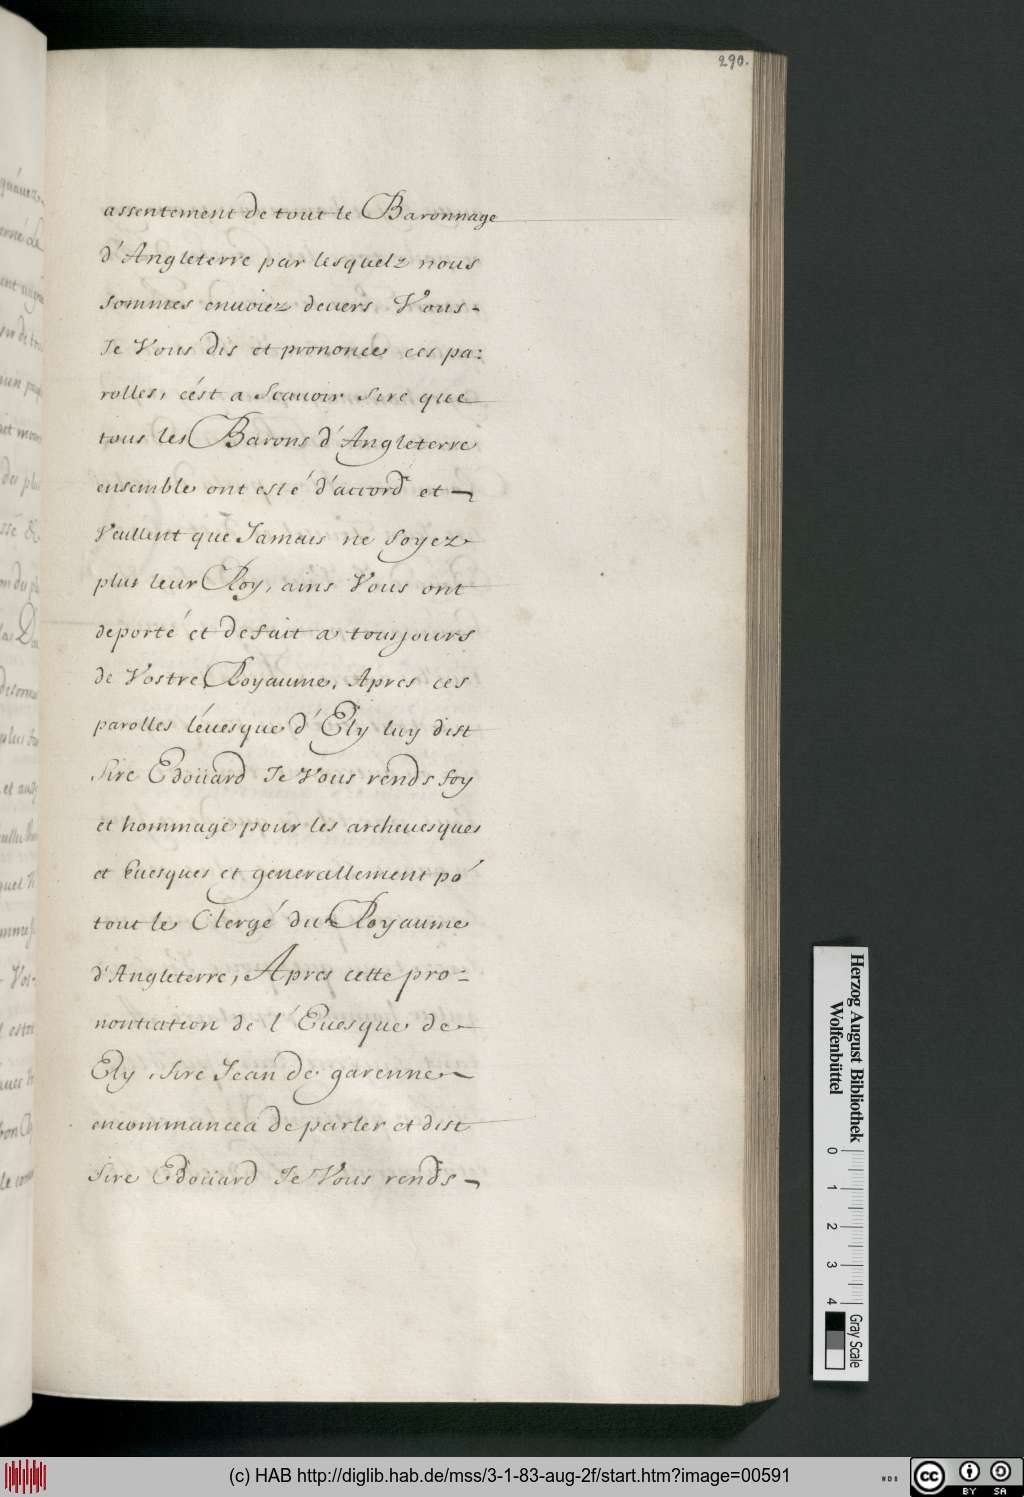 290.
assentement de tout le Baronnage
d'Angleterre par lesquelz nous
sommes enuoiez deuers Vous-
Je Vous dis et prononce ces pa:
rolles, cést a Scauoir Sire que
tous les Barons d'Angleterre
ensemble ont esté d'accord et
Veullent que Jamais ne soyez
plus leur Roy, ains Vous ont
deporté et defait a tousjours
de Vostre Royaume, Apres ces
parolles léuesque d'Ely luy dist
Sire Edoüard Je Vous rends foy
et hommage pour les archeuesques
et Euesques et generallement po'
tout le Clergé du Royaume
d'Angleterre, Apres cette pro-
nontiation de l'Euesque de
Ely, Sire Jean de garenne
encommancea de parler et dist
Sire Edoüard Je Vous rends
Herzog August Bibliothek
Wolfenbüttel
0 1 2 3 4
Gray Scale
(c) HAB http://diglib.hab.de/mss/3-1-83-aug-2f/start.htm?image=00591
WDB
cc BY SA